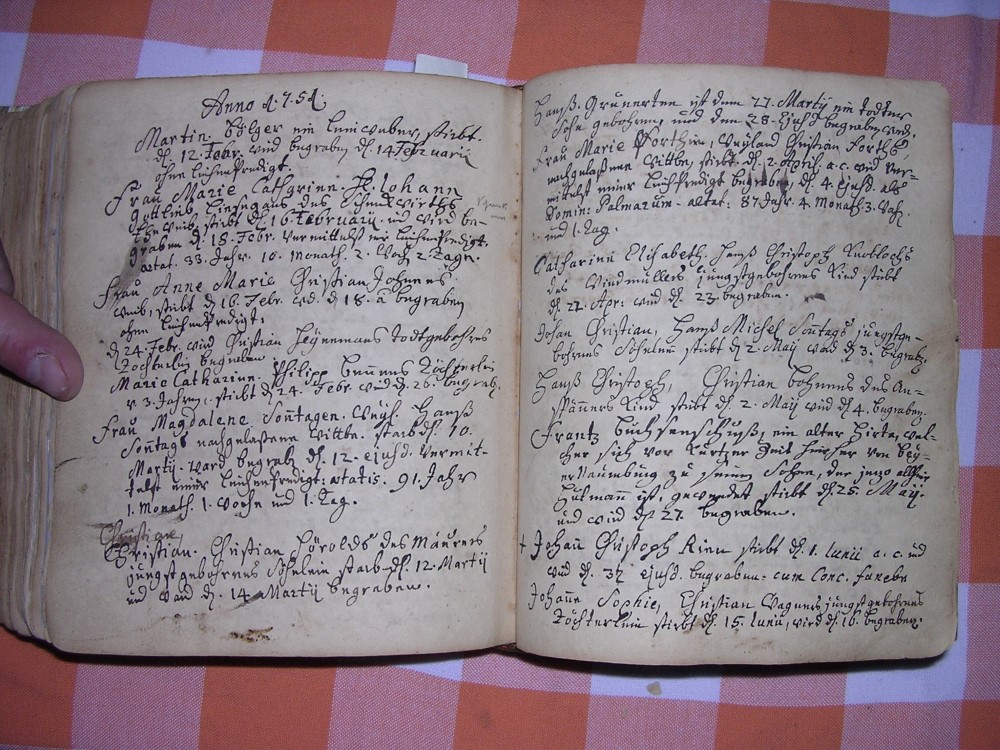 Anno d. 7.51.
Martin. Bölger ein Leineweber, stirbt.
d. 12 Febr. wird begraben d. 14 Februarii
ohne Leichenpredigt.
Frau Marie Catharine. H. Johann
Gottlieb des Schenckwirths
Eheweib, stirbt d. 16 Februarii und wird be-
graben d. 18. Febr. vermittelst einer Leichenpredigt.
aetat. 33. Jahr. 10. Monath. 2. Woch 2 Tage.
Frau Anne Marie Christian Johnens
weib, stirbt d. 16. Febr. wd. d. 18. begraben
ohne Leichenpredigt.
d. 24. Febr. wird Christian Heÿnemans todtgebohrnes
Töchterlein begraben
Marie Catharine. Philipp Töchterlein
v. 3. Jahren, stirbt d. 24. Febr. wird d. 26. begrab.
Frau Magdalene Sontagen. Weÿl. Hannß
Sontags nachgelaßene Wittbe. starb d. 10.
Martÿ. ward begrab d. 12. ejusd. vermit-
telst einer Leichenpredigt: aetatis. 91. Jahr
1. Monath. 1. Woche und 1. Tag.
Christian,
Christian. Christian Hörolds des Mäurers
jüngst gebohrenes Söhnlein starb d. 12. Martÿ
und ward d. 14 Martÿ begraben.
Hannß. Grunerten ist dem Martÿ ein todter
Sohn gebohren, und den 28. Ejusd begraben word.
Frau Marie Porthin, Weÿland Christian Porths,
nachgelaßene Wittbe, stirbt. d. 2. April. a. c. wird ver-
mittelst einer Leichpredigt begraben, d. 4. ejusd. als
Domin: Palmarum. aetat: 87 Jahr. 4. Monath 3. Woch.
und 1. Tag.
Catharine Elisabeth. Hannß Christoph Knoblochs
des Windmüllers jüngstgebohrnes Kind stirbt
d. 21. Apr: wird d. 23. begraben.
Johan Christian, Hannß Michel Sontags jüngstge-
bohrnes Söhnlein stirbt d. 2 Maÿ wird d. 3. begrab.
Hannß Christoph, Christian Bohnens des An-
spänners Kind stirbt d. 2. Maÿ wird d. 4. begraben.
Frantz Buchsenschuß, ein alter Hirte, wel-
cher sich vor kurtzer Zeit hieher von
Naumburg zu seinem Sohne, der jezo allhier
Hutmann ist, gewendet stirbt d. 25. Maÿ.
und wird d. 27. begraben.
+ Johan Christoph Rien stirbt d. 1. Iunii a. c. und
wird d. ejusd. begraben. cum Conc. funebr
Johanne Sophie, Christian Wagners jüngst gebohrenes
Töchterlein stirbt d. 15. Iunii, wird d. 16. begraben.